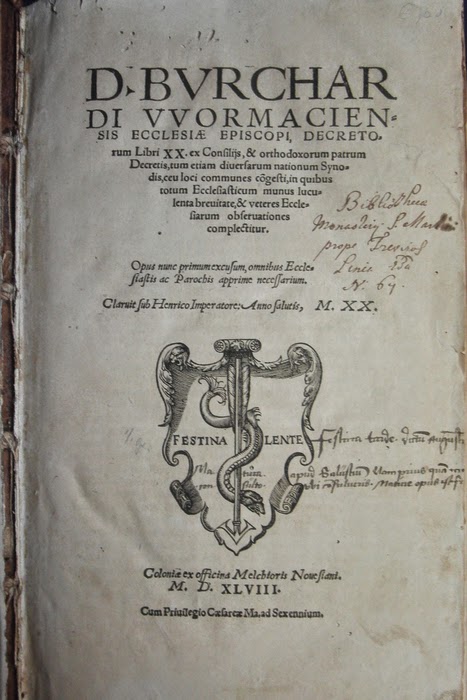 D. BVRCHAR
DI VVORMACIEN-
SIS ECCLESIÆ EPISCOPI, DECRETO-
rum Libri XX. ex Consilijs, & orthodoxorum patrum
Decretis, tum etiam diuersarum nationum Syno-
dis, ceu loci communes cõgesti, in quibus
totum Ecclesiasticum munus lucu-
lenta breuitate, & veteres Eccle-
siarum obseruationes
complectitur.
Bibliotheca
Monasterij S. Martini
prope Treviros
Linea
N. 67
Opus nunc primum excusum, omnibus Eccle-
siastis ac Parochis apprime necessarium.
Claruit sub Henrico Imperatore: Anno salutis, M. XX.
FESTINA LENTE
Festina tarde.
apud Salustiũ
Coloniæ ex officina Melchioris Nouesiani.
M. D. XLVIII.
Cum Priuilegio Cæsareæ Ma. ad Sexennium.